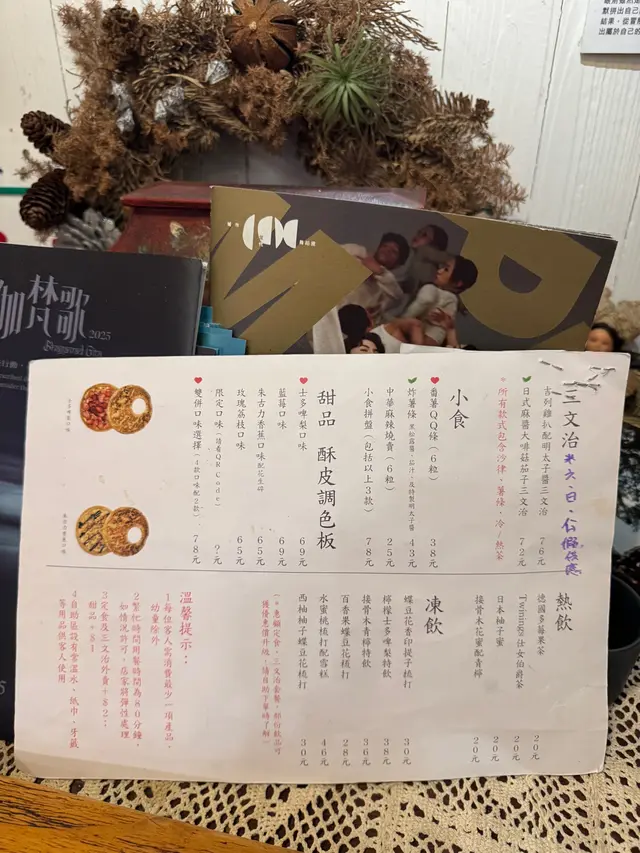 伽梵歌
2025
三文治
*六、日、公假供應
吉列雞扒配明太子醬三文治 76元
日式麻醬大啡菇茄子三文治 72元
*所有款式包含沙律、薯條、冷/熱茶
小食
番薯QQ條(6粒) 38元
炸薯條 43元
中華麻辣燒賣(6粒) 25元
小食拼盤(包括以上3款) 78元
甜品 酥皮調色板
士多啤梨口味 69元
藍莓口味 69元
朱古力香蕉口味配花生碎 65元
玫瑰荔枝口味 65元
限定口味(請看QR Code) ?元
雙併口味選擇(4款口味配2款) 78元
熱飲
德國多莓果茶 20元
Twinings仕女伯爵茶 20元
日本柚子蜜 20元
接骨木花蜜配青檸 20元
凍飲
蝶豆花香印提子梳打 30元
檸檬士多啤梨特飲 38元
接骨木青檸特飲 36元
百香果蝶豆花梳打 28元
水蜜桃梳打配雪糕 46元
西柚柚子蝶豆花梳打 30元
溫馨提示:
1每位客人需消費最少一項產品,
幼童除外
2繁忙時間用餐時間為80分鐘,
如情況許可,店家將彈性處理
3定食及三文治外賣+$2;
甜品+$1
4自助區設有常溫水、紙巾、牙籤
等用品供客人使用